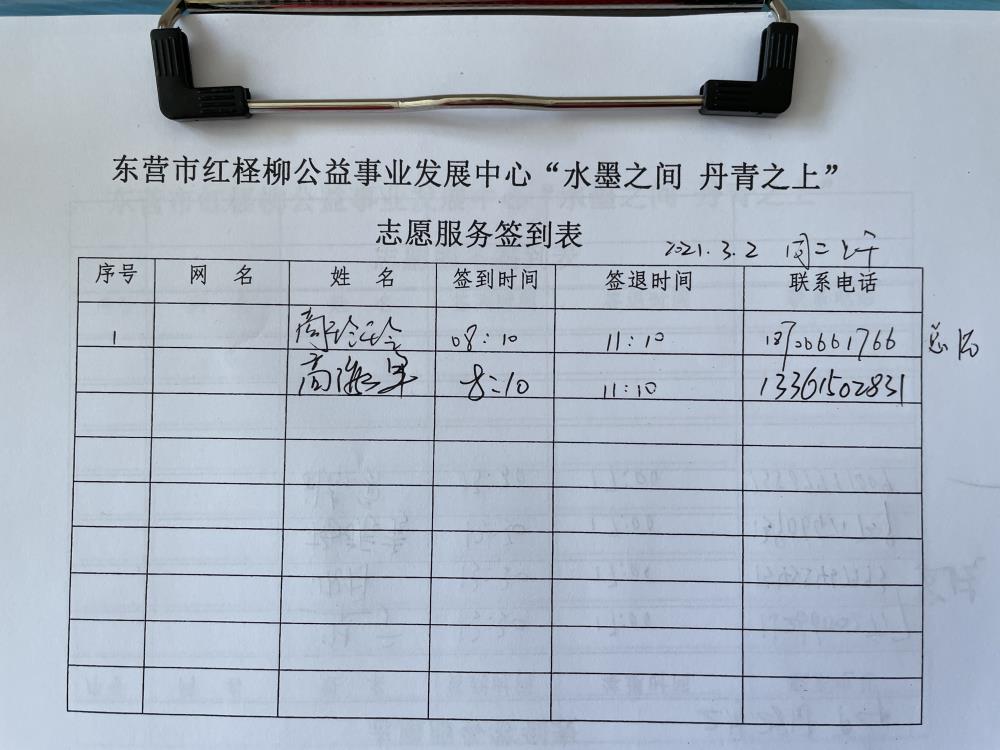 东营市红柽柳公益事业发展中心“水墨之间 丹青之上”
志愿服务签到表
2021.3.2 周二上午
序号 网 名 姓 名 签到时间 签退时间 联系电话
1 08:10 11:10 18700661766
高 8:10 11:10 13361502831